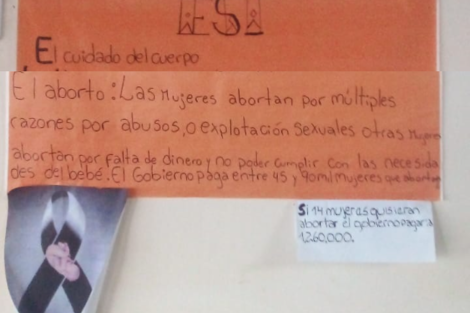 ESI
El cuidado del cuerpo
El aborto: Las Mujeres abortan por múltiples
razones por abusos, o explotación Sexuales otras Mujeres
abortan por falta de dinero y no poder cumplir con las necesida
des del bebé. El Gobierno paga entre 45 y 90mil mujeres que
Si 14 mujeres quisieran
abortar el gobierno pagara
1.260.000.